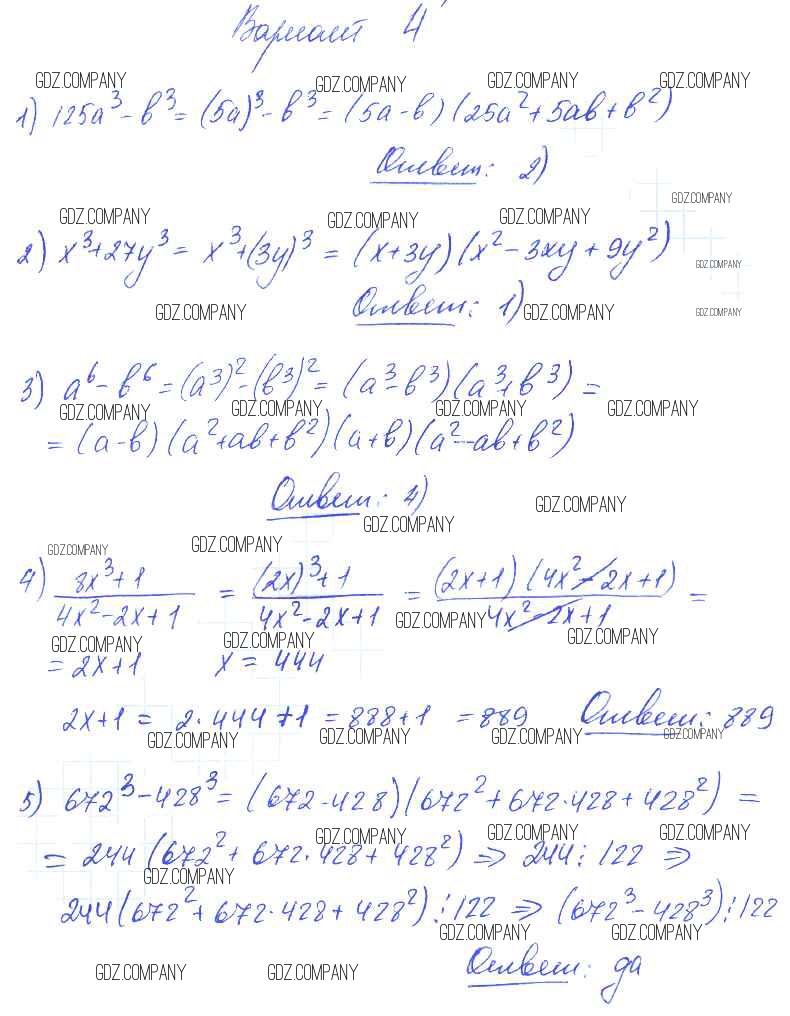 Вариант 4
GDZ.COMPANY GDZ.COMPANY GDZ.COMPANY GDZ.COMPANY
1) 125a³ - b³ = (5a)³ - b³ = (5a - b) (25a² + 5ab + b²)
Ответ: 2)
GDZ.COMPANY
GDZ.COMPANY GDZ.COMPANY GDZ.COMPANY
2) x³ + 27y³ = x³ + (3y)³ = (x + 3y) (x² - 3xy + 9y²)
GDZ.COMPANY
Ответ: 1)
GDZ.COMPANY GDZ.COMPANY GDZ.COMPANY
3) a⁶ - b⁶ = (a³)² - (b³)² = (a³ - b³) (a³ + b³) =
GDZ.COMPANY GDZ.COMPANY GDZ.COMPANY GDZ.COMPANY
= (a - b) (a² + ab + b²) (a + b) (a² - ab + b²)
Ответ: 4)
GDZ.COMPANY
GDZ.COMPANY
GDZ.COMPANY GDZ.COMPANY
4) 8x³ + 1 / 4x² - 2x + 1 = (2x)³ + 1 / 4x² - 2x + 1 = (2x + 1) (4x² - 2x + 1) / 4x² - 2x + 1 =
GDZ.COMPANY GDZ.COMPANY GDZ.COMPANY GDZ.COMPANY
= 2x + 1 x = 444
2x + 1 = 2 · 444 + 1 = 888 + 1 = 889 Ответ: 889
GDZ.COMPANY GDZ.COMPANY GDZ.COMPANY GDZ.COMPANY
5) 672³ - 428³ = (672 - 428) (672² + 672 · 428 + 428²) =
GDZ.COMPANY GDZ.COMPANY GDZ.COMPANY
= 244 (672² + 672 · 428 + 428²) ⇒ 244 ⋮ 122 ⇒
GDZ.COMPANY
244 (672² + 672 · 428 + 428²) ⋮ 122 ⇒ (672³ - 428³) ⋮ 122
GDZ.COMPANY GDZ.COMPANY
Ответ: да
GDZ.COMPANY GDZ.COMPANY